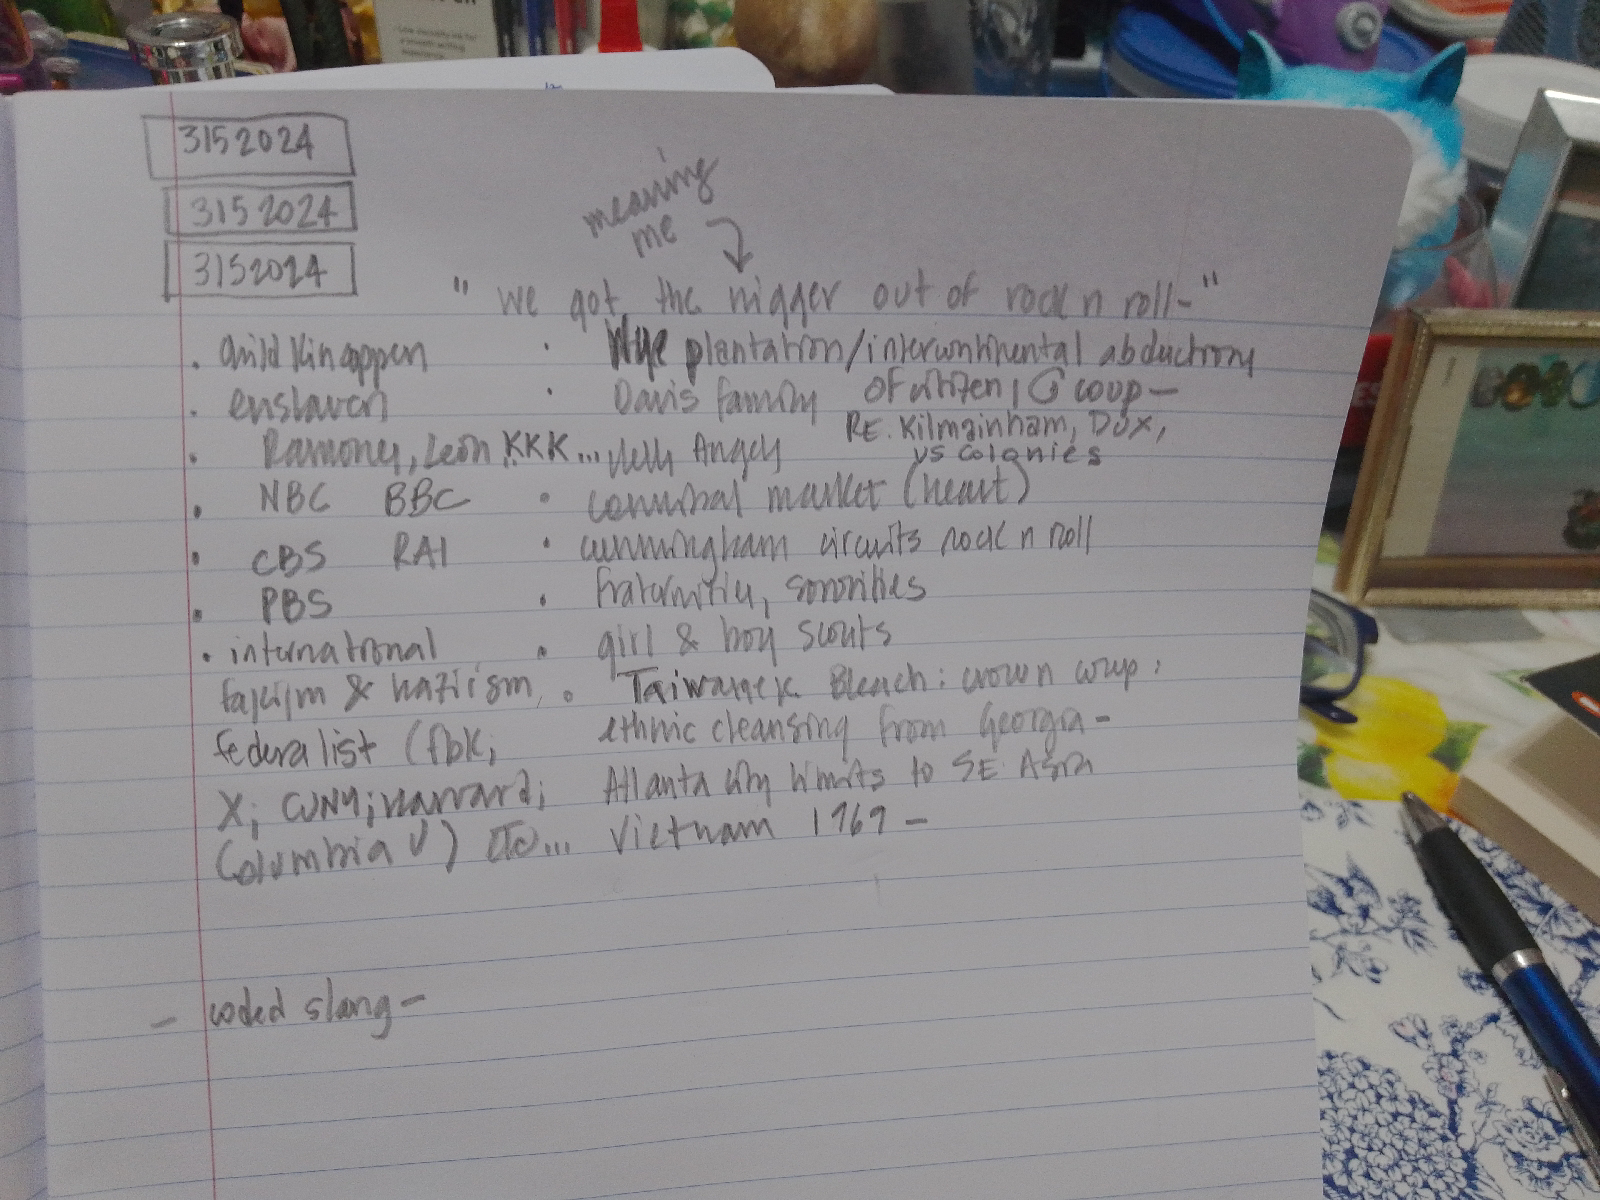 3152024
3152024
3152024
meaning
me
"we got the nigger out of rock n roll-"
. child kinappen
. enslaven
. Ramones, Leon KKK... Hells Angels
. NBC BBC
. CBS RAI
. PBS
. international
fascism & naziism,
federalist (fbk;
X; CUNY; Harvard;
Columbia U) to...
. Wye plantation/intercontinental abductions
of citizen, coup-
. Davis family
RE. Kilmainham, Dux,
vs colonies
. cannibal market (heart)
. cunningham circuits rock n roll
. fraternities, sororities
. girl & boy scouts
. Taiwanese Bleach: crown corp:
ethnic cleansing from Georgia-
Atlanta city limits to SE Asia
Vietnam 1969-
- coded slang-